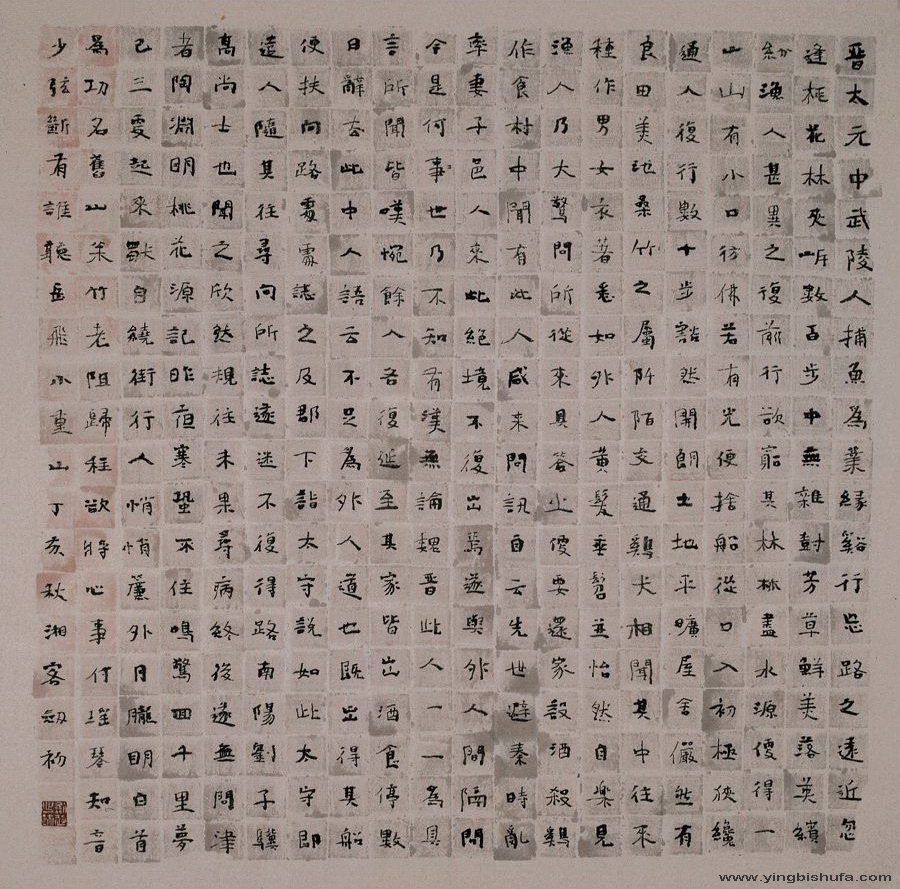 晉太元中武陵人捕魚為業緣谿行忘路之遠近忽
逢桃花林夾岸數百步中無雜尌芳草鮮美落英繽
紛漁人甚異之復前行欲窮其林林盡水源便得一
山山有小口彷佛若有光便捨船從口入初極狹纔
通人復行數十步豁然開朗土地平曠屋舍儼然有
良田美池桑竹之屬阡陌交通鷄犬相聞其中往來
種作男女衣著悉如外人黄髮垂髫並怡然自樂見
漁人乃大驚問所從來具答之便要還家設酒殺鷄
作食村中聞有此人咸来問訊自云先世避秦時亂
率妻子邑人來此絕境不復出焉遂與外人間隔問
今是何事世乃不知有漢無論魏晉此人一一為具
言所聞皆嘆惋餘人各復延至其家皆出酒食停數
日辭去此中人語云不足為外人道也既出得其船
便扶向路處處誌之及郡下詣太守說如此太守即
遣人隨其往尋向所誌遂迷不復得路南陽劉子驥
高尚士也聞之欣然規往未果尋病終後遂無問津
者陶淵明桃花源記昨夜寒蛩不住鳴驚回千里夢
已三更起來獨自繞街行人悄悄簾外月朧明白首
為功名舊山松竹老阻歸程欲將心事付瑤琴知音
少弦斷有誰聽岳飛小重山丁亥秋湘客劍初
www.yingbishufa.com